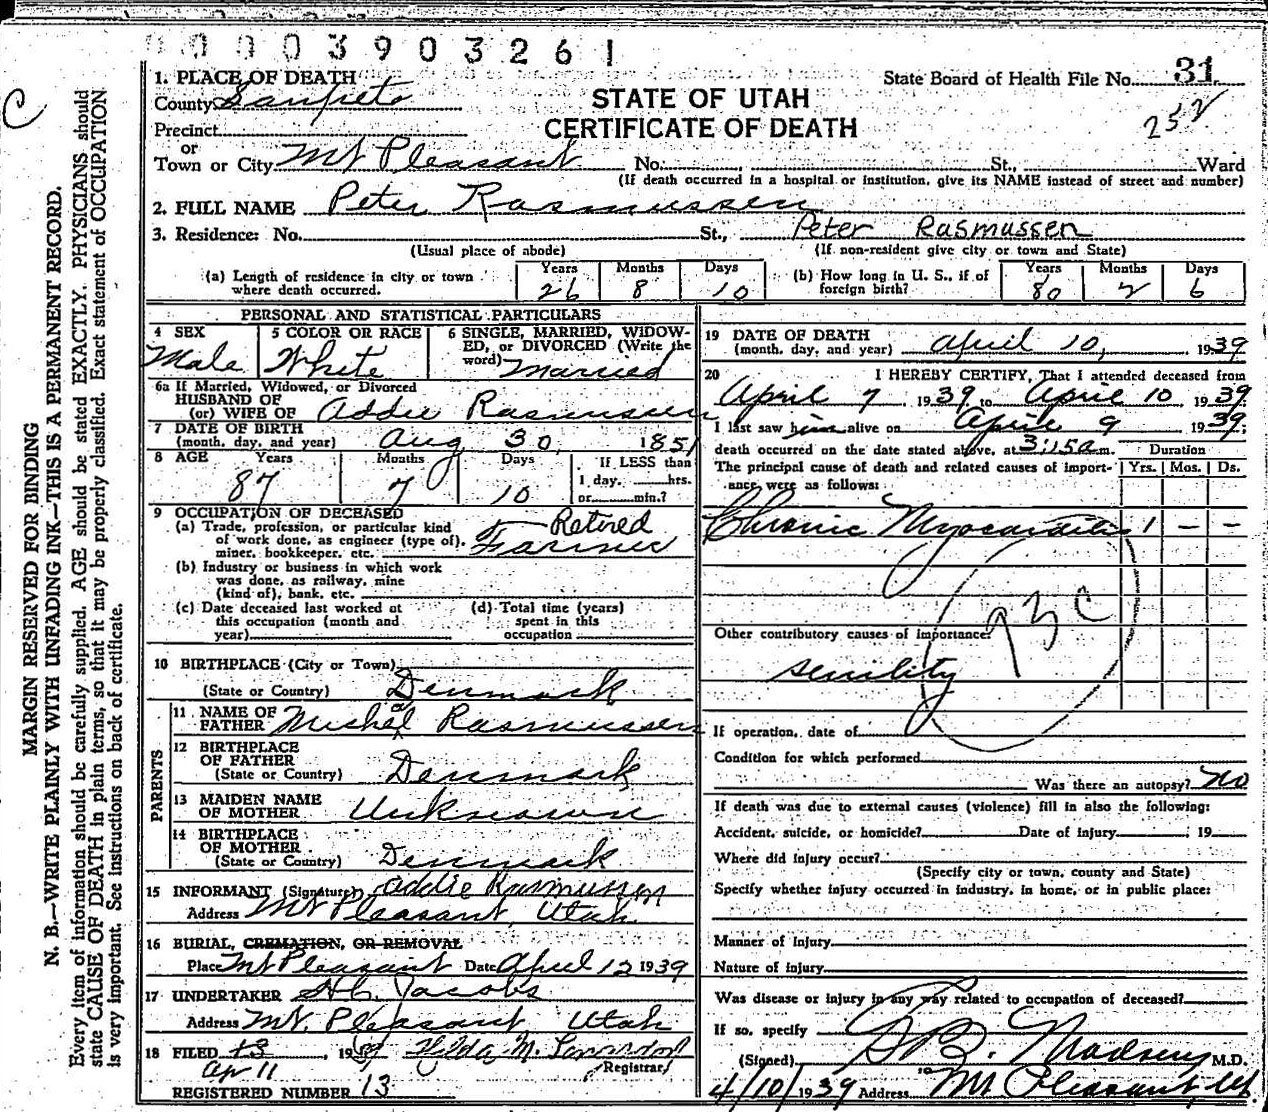 0 0 0 3 9 0 3 2 6 1
1. PLACE OF DEATH
County Sanpete
Precinct
or
Town or City Mt Pleasant No. St., Ward
(If death occurred in a hospital or institution, give its NAME instead of street and number)
State Board of Health File No. 31
252
STATE OF UTAH
CERTIFICATE OF DEATH
2. FULL NAME Peter Rasmussen
3. Residence: No. St., Peter Rasmussen
(Usual place of abode) (If non-resident give city or town and State)
(a) Length of residence in city or town where death occurred. Years 26 Months 8 Days 10
(b) How long in U. S., if of foreign birth? Years 80 Months 2 Days 6
PERSONAL AND STATISTICAL PARTICULARS
4 SEX Male
5 COLOR OR RACE White
6 SINGLE, MARRIED, WIDOW-
ED, or DIVORCED (Write the
word) Married
6a If Married, Widowed, or Divorced
HUSBAND OF
(or) WIFE OF Addie Rasmussen
7 DATE OF BIRTH
(month, day, and year) Aug 30, 1851
8 AGE Years 87 Months 7 Days 10
If LESS than
1 day, hrs.
or min.?
9 OCCUPATION OF DECEASED
(a) Trade, profession, or particular kind
of work done, as engineer (type of),
miner, bookkeeper, etc. Retired
Farmer
(b) Industry or business in which work
was done, as railway, mine
(kind of), bank, etc.
(c) Date deceased last worked at
this occupation (month and
year)
(d) Total time (years)
spent in this
occupation
10 BIRTHPLACE (City or Town)
(State or Country) Denmark
PARENTS
11 NAME OF
FATHER Michel Rasmussen
a
12 BIRTHPLACE
OF FATHER
(State or Country) Denmark
13 MAIDEN NAME
OF MOTHER Unknown
14 BIRTHPLACE
OF MOTHER
(State or Country) Denmark
15 INFORMANT (Signature) Addie Rasmussen
Address Mt Pleasant, Utah
16 BURIAL, CREMATION, OR REMOVAL
Place Mt Pleasant Date April 12 1939
17 UNDERTAKER Jacobs
Address Mt. Pleasant, Utah
18 FILED 13, 19 39 Hilda M.
Apr 11 Registrar
REGISTERED NUMBER 13
19 DATE OF DEATH
(month, day, and year) April 10, 1939
20 I HEREBY CERTIFY, That I attended deceased from
April 7 1939 to April 10 1939
I last saw him alive on April 9 1939;
death occurred on the date stated above, at 3:15a m.
The principal cause of death and related causes of import-
ance were as follows:
Duration
Yrs. Mos. Ds.
Chronic Myocarditis 1 – –
93c
Other contributory causes of importance:
senility
If operation, date of
Condition for which performed
Was there an autopsy? No
If death was due to external causes (violence) fill in also the following:
Accident, suicide, or homicide? Date of injury ; 19
Where did injury occur?
(Specify city or town, county and State)
Specify whether injury occurred in industry, in home, or in public place:
Manner of Injury
Nature of injury
Was disease or injury in any way related to occupation of deceased?
If so, specify
(Signed) Madsen M.D.
4/10/1939 Address Mt Pleasant, Ut.
C
MARGIN RESERVED FOR BINDING
N. B.—WRITE PLAINLY WITH UNFADING INK—THIS IS A PERMANENT RECORD.
Every item of information should be carefully supplied. AGE should be stated EXACTLY. PHYSICIANS should
state CAUSE OF DEATH in plain terms, so that it may be properly classified. Exact statement of OCCUPATION
is very important. See instructions on back of certificate.